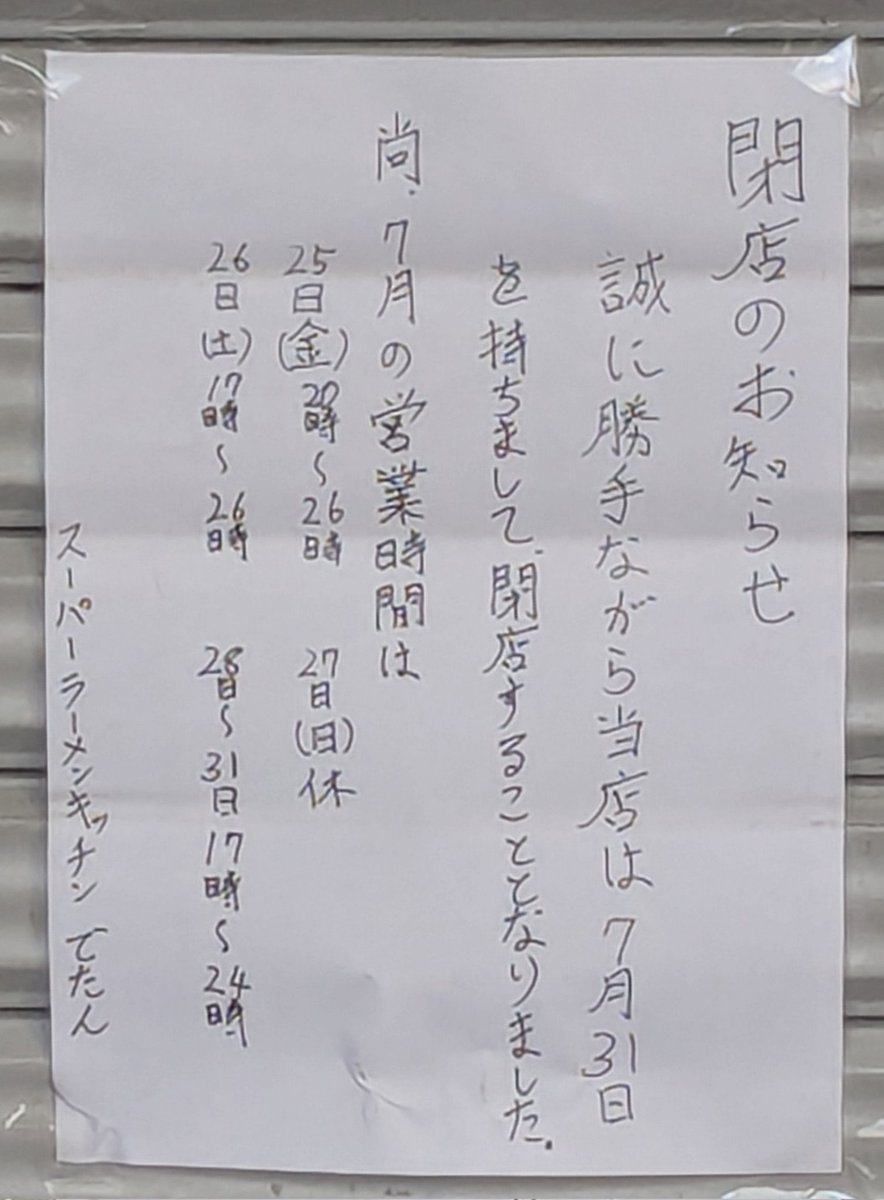 閉店のお知らせ
誠に勝手ながら当店は7月31日
を持ちまして、閉店することとなりました。
尚、7月の営業時間は
25日(金)20時〜26時　27日(日)休
26日(土)17時〜26時　28日〜31日17時〜24時
スーパーラーメンキッチンでたん